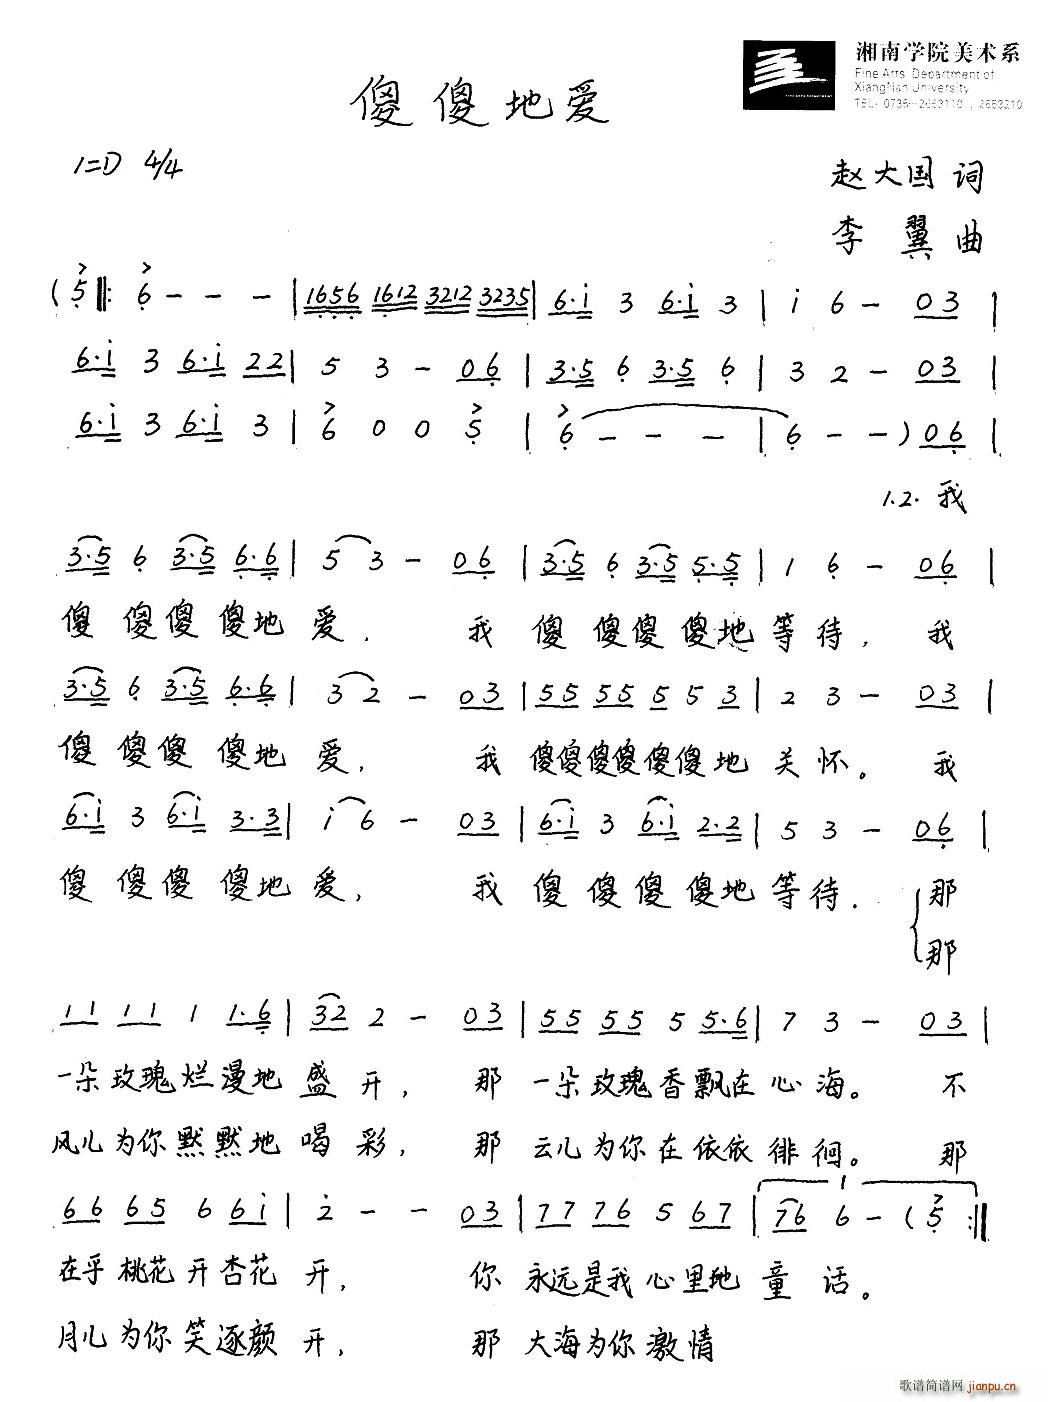 湘南学院美术系
Fine Arts Department of
XiangNan University
TEL: 0735-2653110 , 2653210
傻傻地爱
1=D 4/4
赵大国 词
李翼 曲
( 5 ‖: 6 - - - | 1656 1612 3212 3235 | 6·i 3 6·i 3 | i 6 - 03 |
6·i 3 6·i 22 | 5 3 - 06 | 3·5 6 3·5 6 | 3 2 - 03 |
6·i 3 6·i 3 | 6 0 0 5 | 6 - - - | 6 - - ) 06 |
1.2. 我
3·5 6 3·5 6·6 | 5 3 - 06 | 3·5 6 3·5 5·5 | 1 6 - 06 |
傻 傻傻 傻地 爱. 我 傻 傻傻 傻地 等待, 我
3·5 6 3·5 6·6 | 3 2 - 03 | 55 55 5 5 3 | 2 3 - 03 |
傻 傻傻 傻地 爱, 我 傻傻傻傻傻傻地 关怀。 我
6·i 3 6·i 3·3 | i 6 - 03 | 6·i 3 6·i 2·2 | 5 3 - 06 |
傻 傻傻 傻地 爱, 我 傻 傻傻 傻地 等待. 那
那
11 11 1 1·6 | 32 2 - 03 | 55 55 5 5·6 | 7 3 - 03 |
一朵玫瑰烂漫地 盛 开, 那 一朵玫瑰香飘在 心海。 不
风儿为你默默地 喝彩, 那 云儿为你在依依 徘徊。 那
66 65 6 6i | 2 - - 03 | 77 76 5 67 | 1 76 6 - ( 5 :‖
在乎 桃花开杏花 开, 你 永远是我心里地 童话。
月儿为你笑逐颜 开, 那 大海为你激情
歌谱简谱网 jianpu.cn